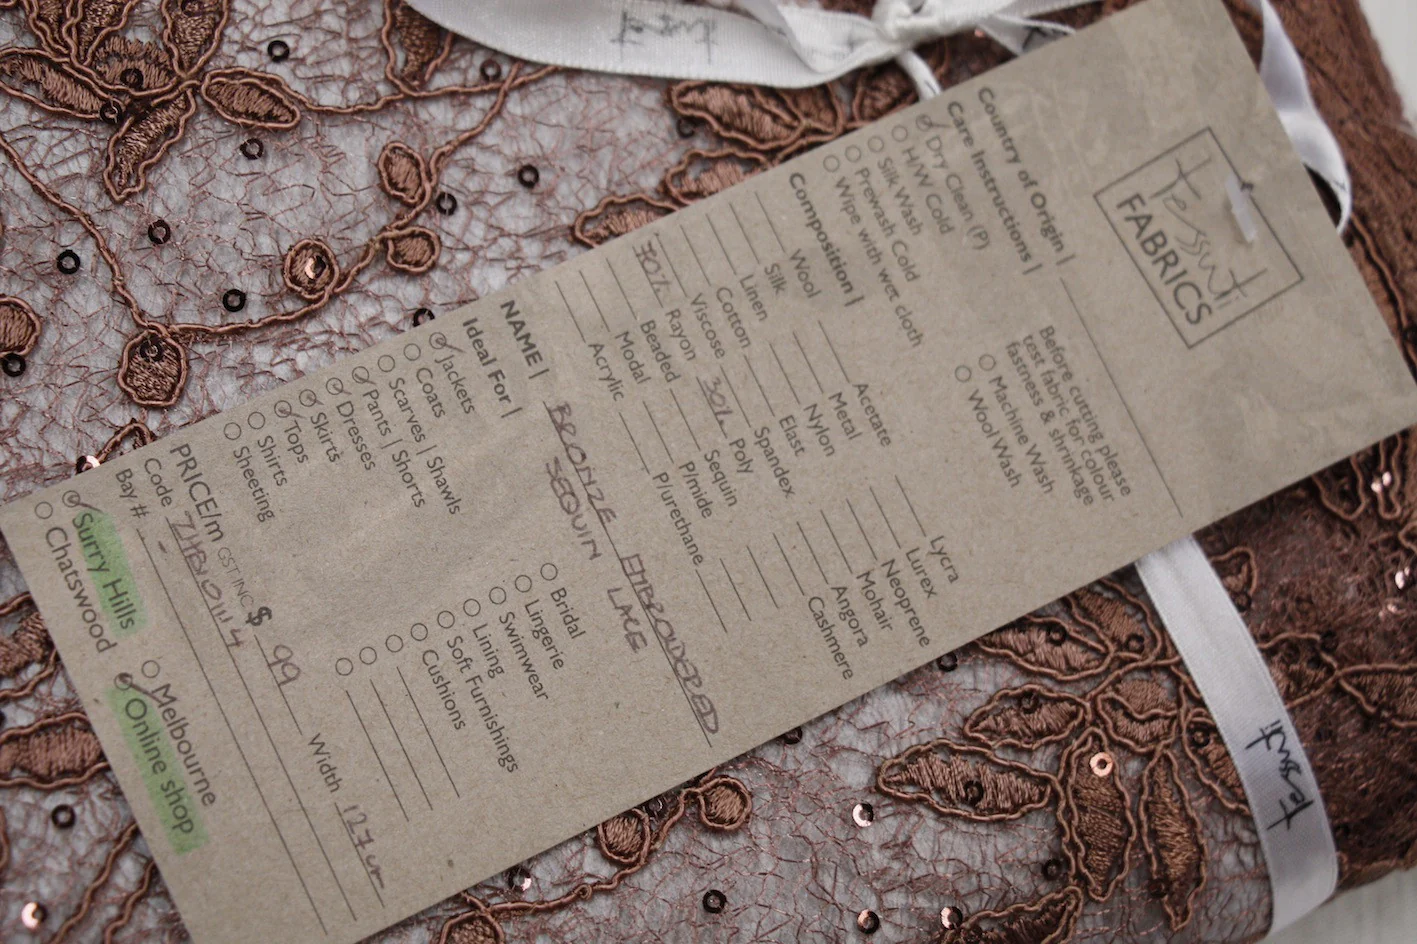 Tessuti
FABRICS
Country of Origin |
Care Instructions |
Dry Clean (P)
H/W Cold
Silk Wash
Prewash Cold
Wipe with wet cloth
Before cutting please
test fabric for colour
fastness & shrinkage
Machine Wash
Wool Wash
Composition |
Wool
Silk
Linen
Cotton
Viscose
70% Rayon
Beaded
Modal
Acrylic
Acetate
Metal
Nylon
Elast
Spandex
30% Poly
Sequin
P/mide
P/urethane
Lycra
Lurex
Neoprene
Mohair
Angora
Cashmere
NAME | BRONZE EMBROIDERED
SEQUIN LACE
Ideal For |
Jackets
Coats
Scarves | Shawls
Pants | Shorts
Dresses
Skirts
Tops
Shirts
Sheeting
Bridal
Lingerie
Swimwear
Lining
Soft Furnishings
Cushions
PRICE/m GST INC $ 99 Width 127cm
Code
Bay # -
Surry Hills
Chatswood
Melbourne
Online shop
Tessuti
Tessuti